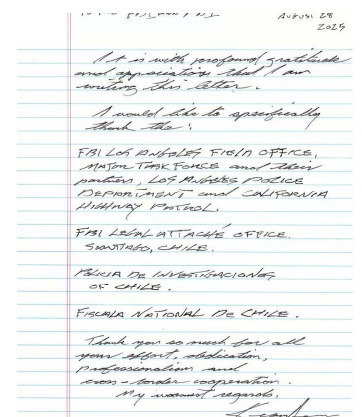 August 28
2025
It is with profound gratitude
and appreciation that I am
writing this letter.
I would like to specifically
thank the:
FBI LOS ANGELES FIELD OFFICE,
MAJOR TASK FORCE and their
partners, LOS ANGELES POLICE
DEPARTMENT and CALIFORNIA
HIGHWAY PATROL.
FBI LEGAL ATTACHÉ OFFICE.
SANTIAGO, CHILE.
POLICIA DE INVESTIGACIONES
OF CHILE.
FISCALA NATIONAL DE CHILE.
Thank you so much for all
your effort, dedication,
professionalism and
cross-border cooperation.
My warmest regards,